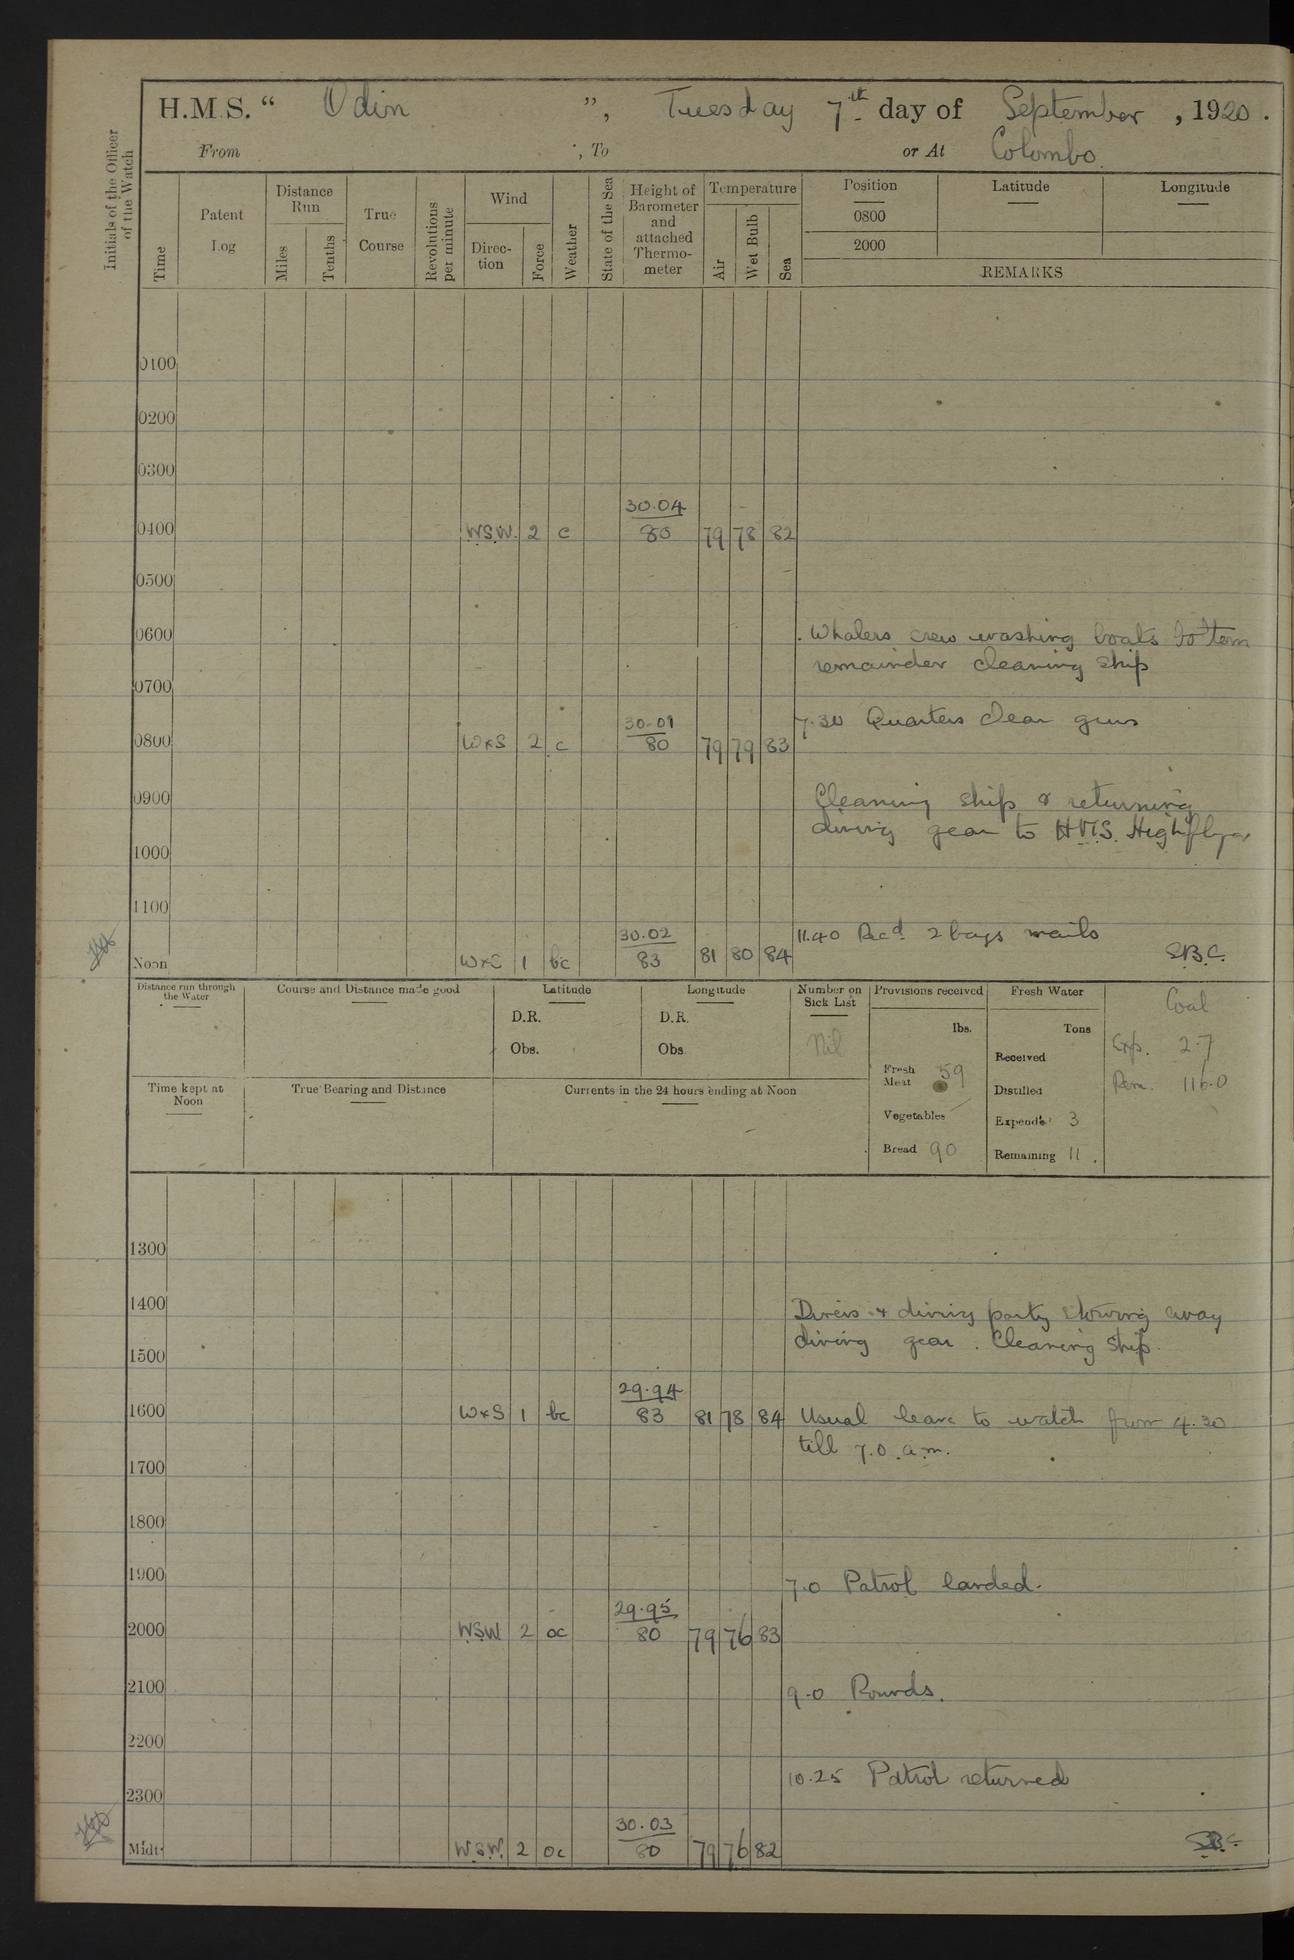 H.M.S. “ Odin ”, Tuesday 7th day of September, 1920.
From , To or At Colombo.
Initials of the Officer of the Watch
Time
Patent Log
Distance Run
Miles
Tenths
True Course
Revolutions per minute
Wind
Direction
Force
Weather
State of the Sea
Height of Barometer and attached Thermometer
Temperature
Air
Wet Bulb
Sea
Position Latitude Longitude
0800
2000
REMARKS
0100
0200
0300
30.04
0400 WSW. 2 c 80 79 78 82
0500
0600 Whalers crew washing boats bottom
remainder cleaning ship
0700
30.01 7.30 Quarters clean guns
0800 WxS 2 c 80 79 79 83
0900 Cleaning ship & returning
diving gear to HMS. Highflyer
1000
1100
30.02 11.40 Recd. 2 bags mails
Noon WxS 1 bc 83 81 80 84 S.B.C.
Distance run through the Water
Course and Distance made good
Latitude
D.R.
Obs.
Longitude
D.R.
Obs.
Number on Sick List
Nil
Provisions received
lbs.
Fresh Meat 59
Vegetables
Bread 90
Fresh Water
Tons
Received
Distilled
Expend'd 3
Remaining 11.
Coal
Exp. 2.7
Rem. 116.0
Time kept at Noon
True Bearing and Distance
Currents in the 24 hours ending at Noon
1300
1400 Divers & diving party stowing away
diving gear. Cleaning ship.
1500
29.94
1600 WxS 1 bc 83 81 78 84 Usual leave to watch from 4.30
till 7.0 a.m.
1700
1800
1900 7.0 Patrol landed.
29.95
2000 WSW 2 oc 80 79 76 83
2100 9.0 Rounds.
2200
10.25 Patrol returned
2300
30.03
Midt. WSW. 2 oc 80 79 76 82 S.B.C.